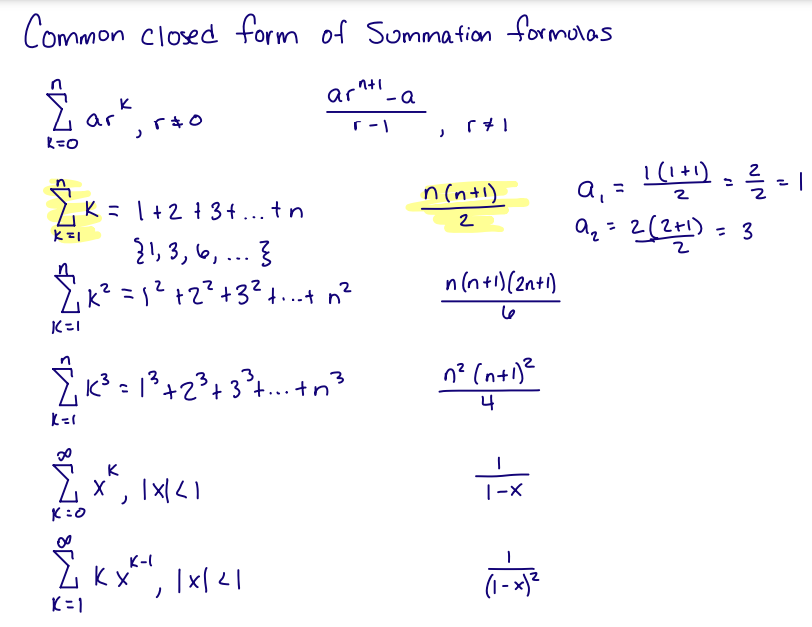 Common closed form of Summation formulas
n∑k=0 ar^k, r≠0    (ar^(n+1) - a)/(r-1), r≠1
n∑k=1 k = 1+2+3+...+n    n(n+1)/2    a₁ = 1(1+1)/2 = 2/2 = 1
{1, 3, 6, ... }    a₂ = 2(2+1)/2 = 3
n∑k=1 k² = 1²+2²+3²+...+n²    n(n+1)(2n+1)/6
n∑k=1 k³ = 1³+2³+3³+...+n³    n²(n+1)²/4
∞∑k=0 x^k, |x|<1    1/(1-x)
∞∑k=1 kx^(k-1), |x|<1    1/(1-x)²